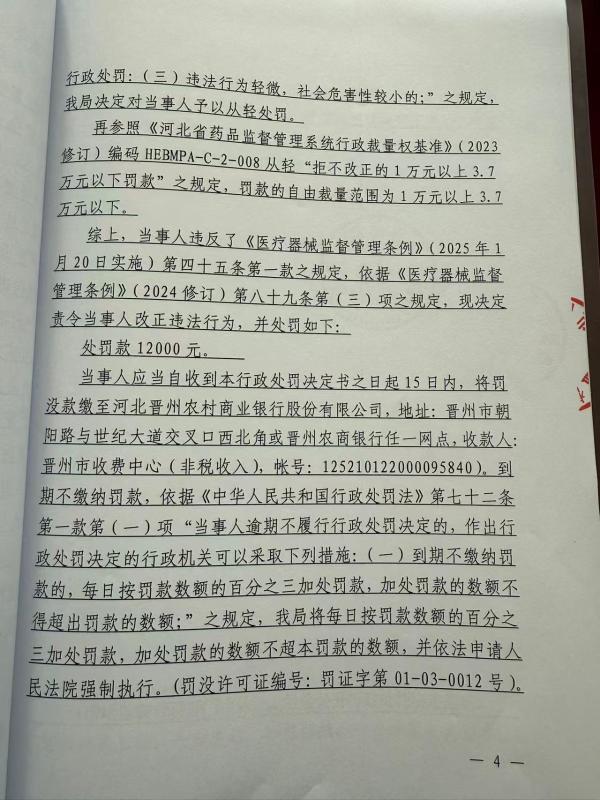 行政处罚:(三)违法行为轻微,社会危害性较小的;”之规定,
我局决定对当事人予以从轻处罚。
再参照《河北省药品监督管理系统行政裁量权基准》(2023
修订)编码 HEBMPA-C-2-008 从轻“拒不改正的 1 万元以上 3.7
万元以下罚款”之规定,罚款的自由裁量范围为 1 万元以上 3.7
万元以下。
综上,当事人违反了《医疗器械监督管理条例》(2025 年 1
月 20 日实施)第四十五条第一款之规定,依据《医疗器械监督
管理条例》(2024 修订)第八十九条第(三)项之规定,现决定
责令当事人改正违法行为,并处罚如下:
处罚款 12000 元。
当事人应当自收到本行政处罚决定书之日起 15 日内,将罚
没款缴至河北晋州农村商业银行股份有限公司,地址:晋州市朝
阳路与世纪大道交叉口西北角或晋州农商银行任一网点,收款人:
晋州市收费中心(非税收入),帐号:125210122000095840)。到
期不缴纳罚款,依据《中华人民共和国行政处罚法》第七十二条
第一款第(一)项“当事人逾期不履行行政处罚决定的,作出行
政处罚决定的行政机关可以采取下列措施:(一)到期不缴纳罚
款的,每日按罚款数额的百分之三加处罚款,加处罚款的数额不
得超出罚款的数额;”之规定,我局将每日按罚款数额的百分之
三加处罚款,加处罚款的数额不超本罚款的数额,并依法申请人
民法院强制执行。(罚没许可证编号:罚证字第 01-03-0012 号)。
— 4 —